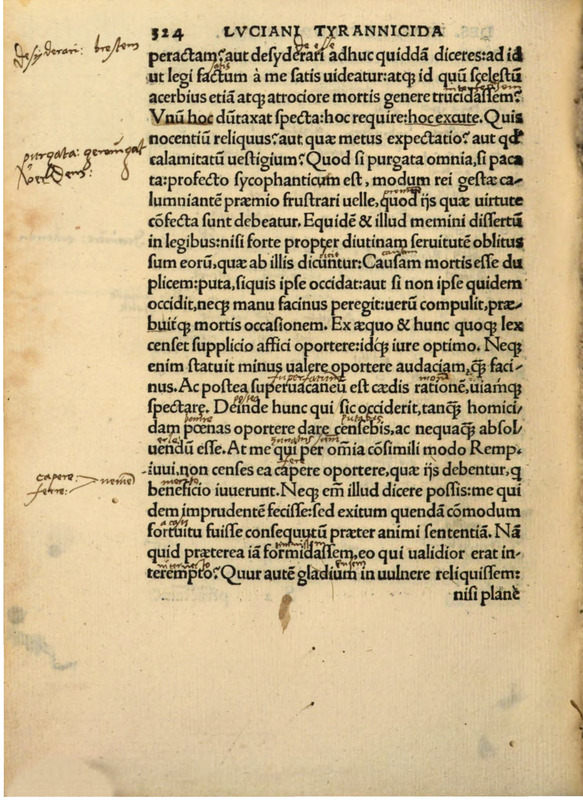 324 LVCIANI TYRANNICIDA
desyderari: bresten
peractam? aut desyderari adhuc quiddã diceres: ad id
ut legi factum à me satis uideatur: atq; id quũ scelestũ
acerbius etiã atq; atrociore mortis genere trucidassem?
Vnũ hoc dũtaxat specta: hoc require: hoc excute. Quis
nocentiũ reliquus? aut quæ metus expectatio? aut qđ
calamitatũ uestigium? Quod si purgata omnia, si paca
ta: profecto sycophanticum est, modum rei gestæ ca-
lumniantẽ præmio frustrari uelle, quod ijs quæ uirtute
cõfecta sunt debeatur. Equidẽ & illud memini dissertũ
in legibus: nisi forte propter diutinam seruitutẽ oblitus
sum eorũ, quæ ab illis dicũtur: Causam mortis esse du
plicem: puta, siquis ipse occidat: aut si non ipse quidem
occidit, neq; manu facinus peregit: uerũ compulit, præ-
buitq; mortis occasionem. Ex æquo & hunc quoq; lex
censet supplicio affici oportere: idq; iure optimo. Neq;
enim statuit minus ualere oportere audaciam, q̃ faci-
nus. Ac postea superuacaneũ est cædis rationẽ, uiamq;
spectare. Deinde hunc qui sic occiderit, tanq̃ homici/
dam pœnas oportere dare censebis, ac nequaq̃ absol/
uendũ esse. At me qui per omĩa cõsimili modo Remp.
iuui, non censes ea capere oportere, quæ ijs debentur, q
capere: nemẽ
beneficio iuuerunt. Neq; em̃ illud dicere possis: me qui
dem imprudentẽ fecisse: sed exitum quendã cõmodum
fortuitu fuisse consequutũ præter animi sententiã. Nã
quid præterea iã formidassem, eo qui ualidior erat in-
terempto? Quur autẽ gladium in uulnere reliquissem:
nisi planè